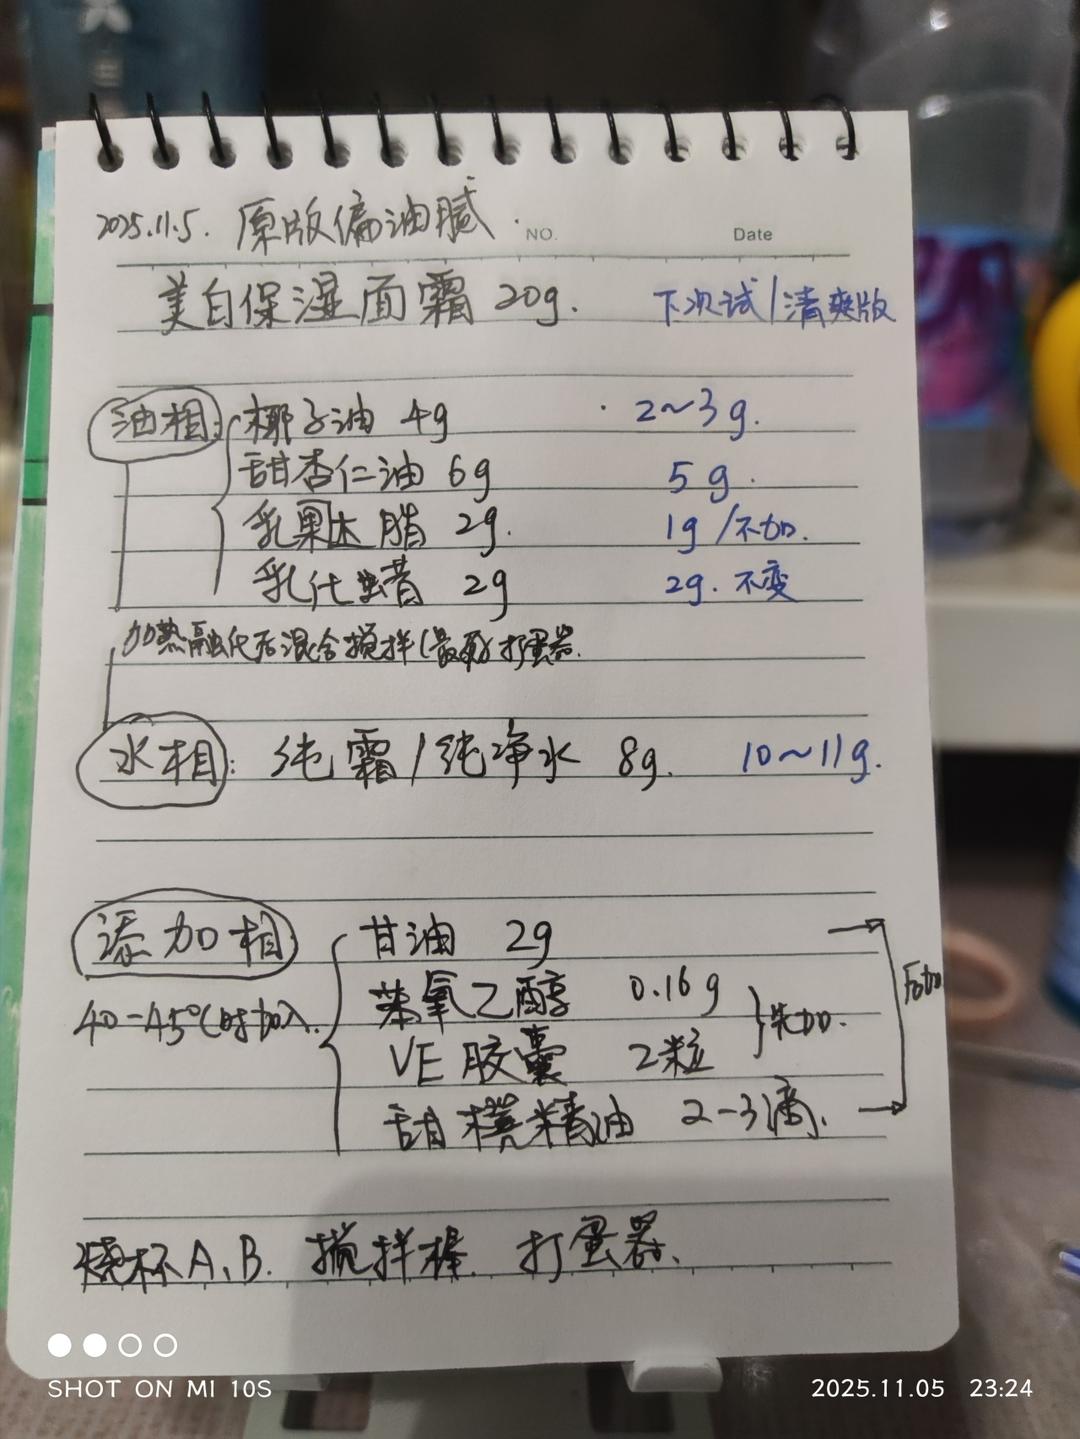 2025.11.5. 原版偏油腻.
NO.
Date
美白保湿面霜 20g.
下次试/清爽版
油相: 椰子油 4g · 2~3g.
甜杏仁油 6g 5g.
乳果木脂 2g. 1g/不加.
乳化蜡 2g 2g. 不变
加热融化后混合搅拌 打蛋器.
水相: 纯霜/纯净水 8g. 10~11g.
添加相 甘油 2g
40-45℃时加入. 苯氧乙醇 0.16g 先加.
后加
VE胶囊 2粒
甜橙精油 2-3滴.
烧杯A、B. 搅拌棒. 打蛋器.
SHOT ON MI 10S
2025.11.05 23:24